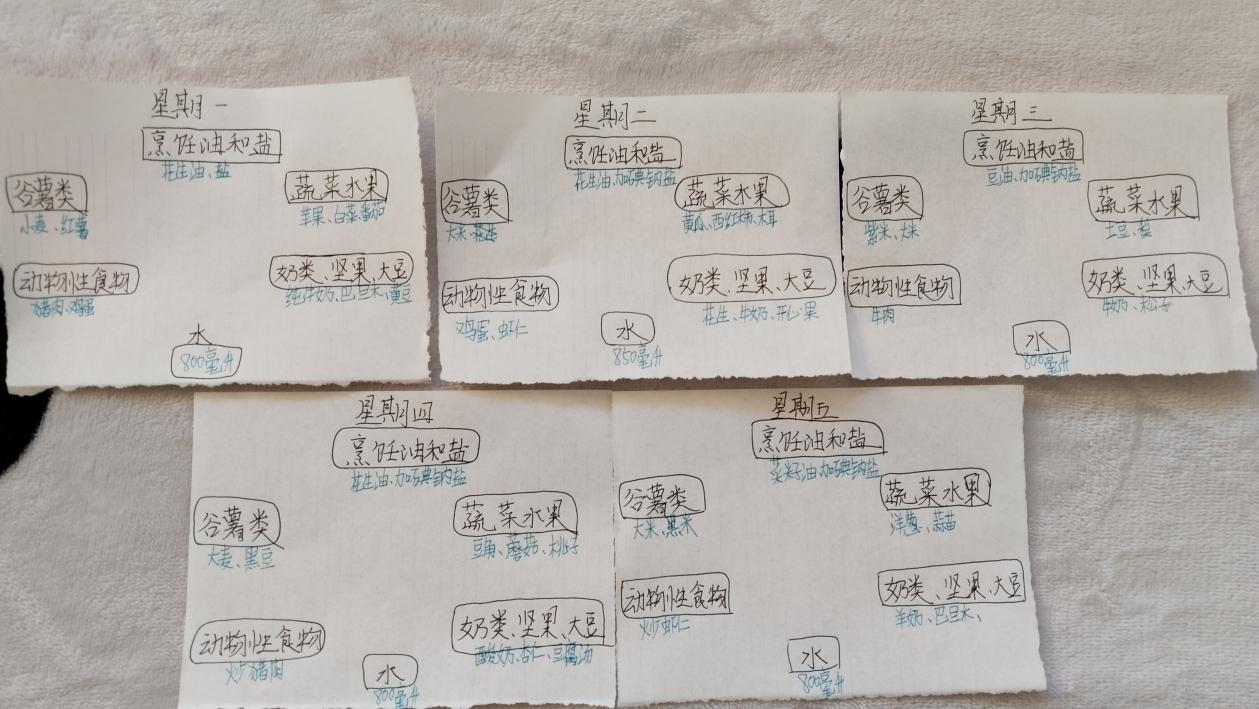 星期一
烹饪油和盐
花生油、盐
谷薯类
小麦、红薯
蔬菜水果
苹果、白菜、番茄
动物性食物
猪肉、鸡蛋
奶类、坚果、大豆
纯牛奶、巴旦木、黄豆
水
800毫升
星期二
烹饪油和盐
花生油、加碘钠盐
谷薯类
大米、花生
蔬菜水果
黄瓜、西红柿、木耳
动物性食物
鸡蛋、虾仁
奶类、坚果、大豆
花生、牛奶、开心果
水
850毫升
星期三
烹饪油和盐
豆油、加碘钠盐
谷薯类
紫米、大米
蔬菜水果
土豆、梨
动物性食物
牛肉
奶类、坚果、大豆
牛奶、松子
水
800毫升
星期四
烹饪油和盐
花生油、加碘钠盐
谷薯类
大麦、黑豆
蔬菜水果
豆角、蘑菇、桃子
动物性食物
炒猪肉
奶类、坚果、大豆
酸奶、杏仁、豆腐汤
水
800毫升
星期五
烹饪油和盐
菜籽油、加碘钠盐
谷薯类
大米、黑米
蔬菜水果
洋葱、蒜苗
动物性食物
炒虾仁
奶类、坚果、大豆
羊奶、巴旦木、
水
800毫升